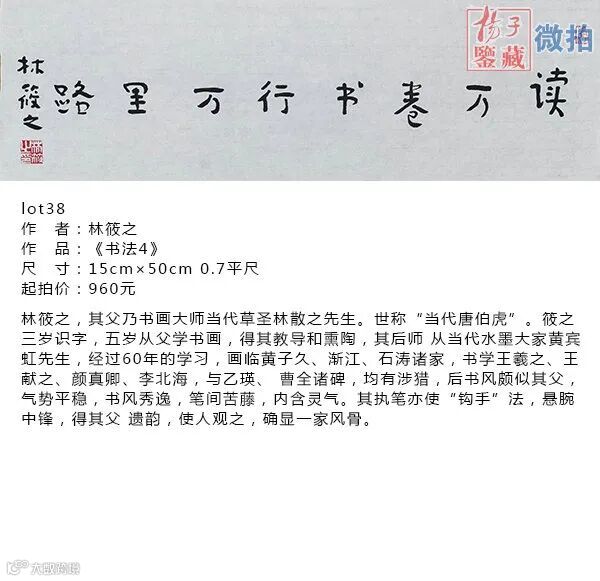 扬子
鑒藏
微拍
读万卷书行万里路
林筱之
lot38
作 者：林筱之
作 品：《书法4》
尺 寸：15cm×50cm 0.7平尺
起拍价：960元
林筱之，其父乃书画大师当代草圣林散之先生。世称“当代唐伯虎”。筱之
三岁识字，五岁从父学书画，得其教导和熏陶，其后师 从当代水墨大家黄宾
虹先生，经过60年的学习，画临黄子久、渐江、石涛诸家，书学王羲之、王
献之、颜真卿、李北海，与乙瑛、 曹全诸碑，均有涉猎，后书风颇似其父，
气势平稳，书风秀逸，笔间苦藤，内含灵气。其执笔亦使“钩手”法，悬腕
中锋，得其父 遗韵，使人观之，确显一家风骨。